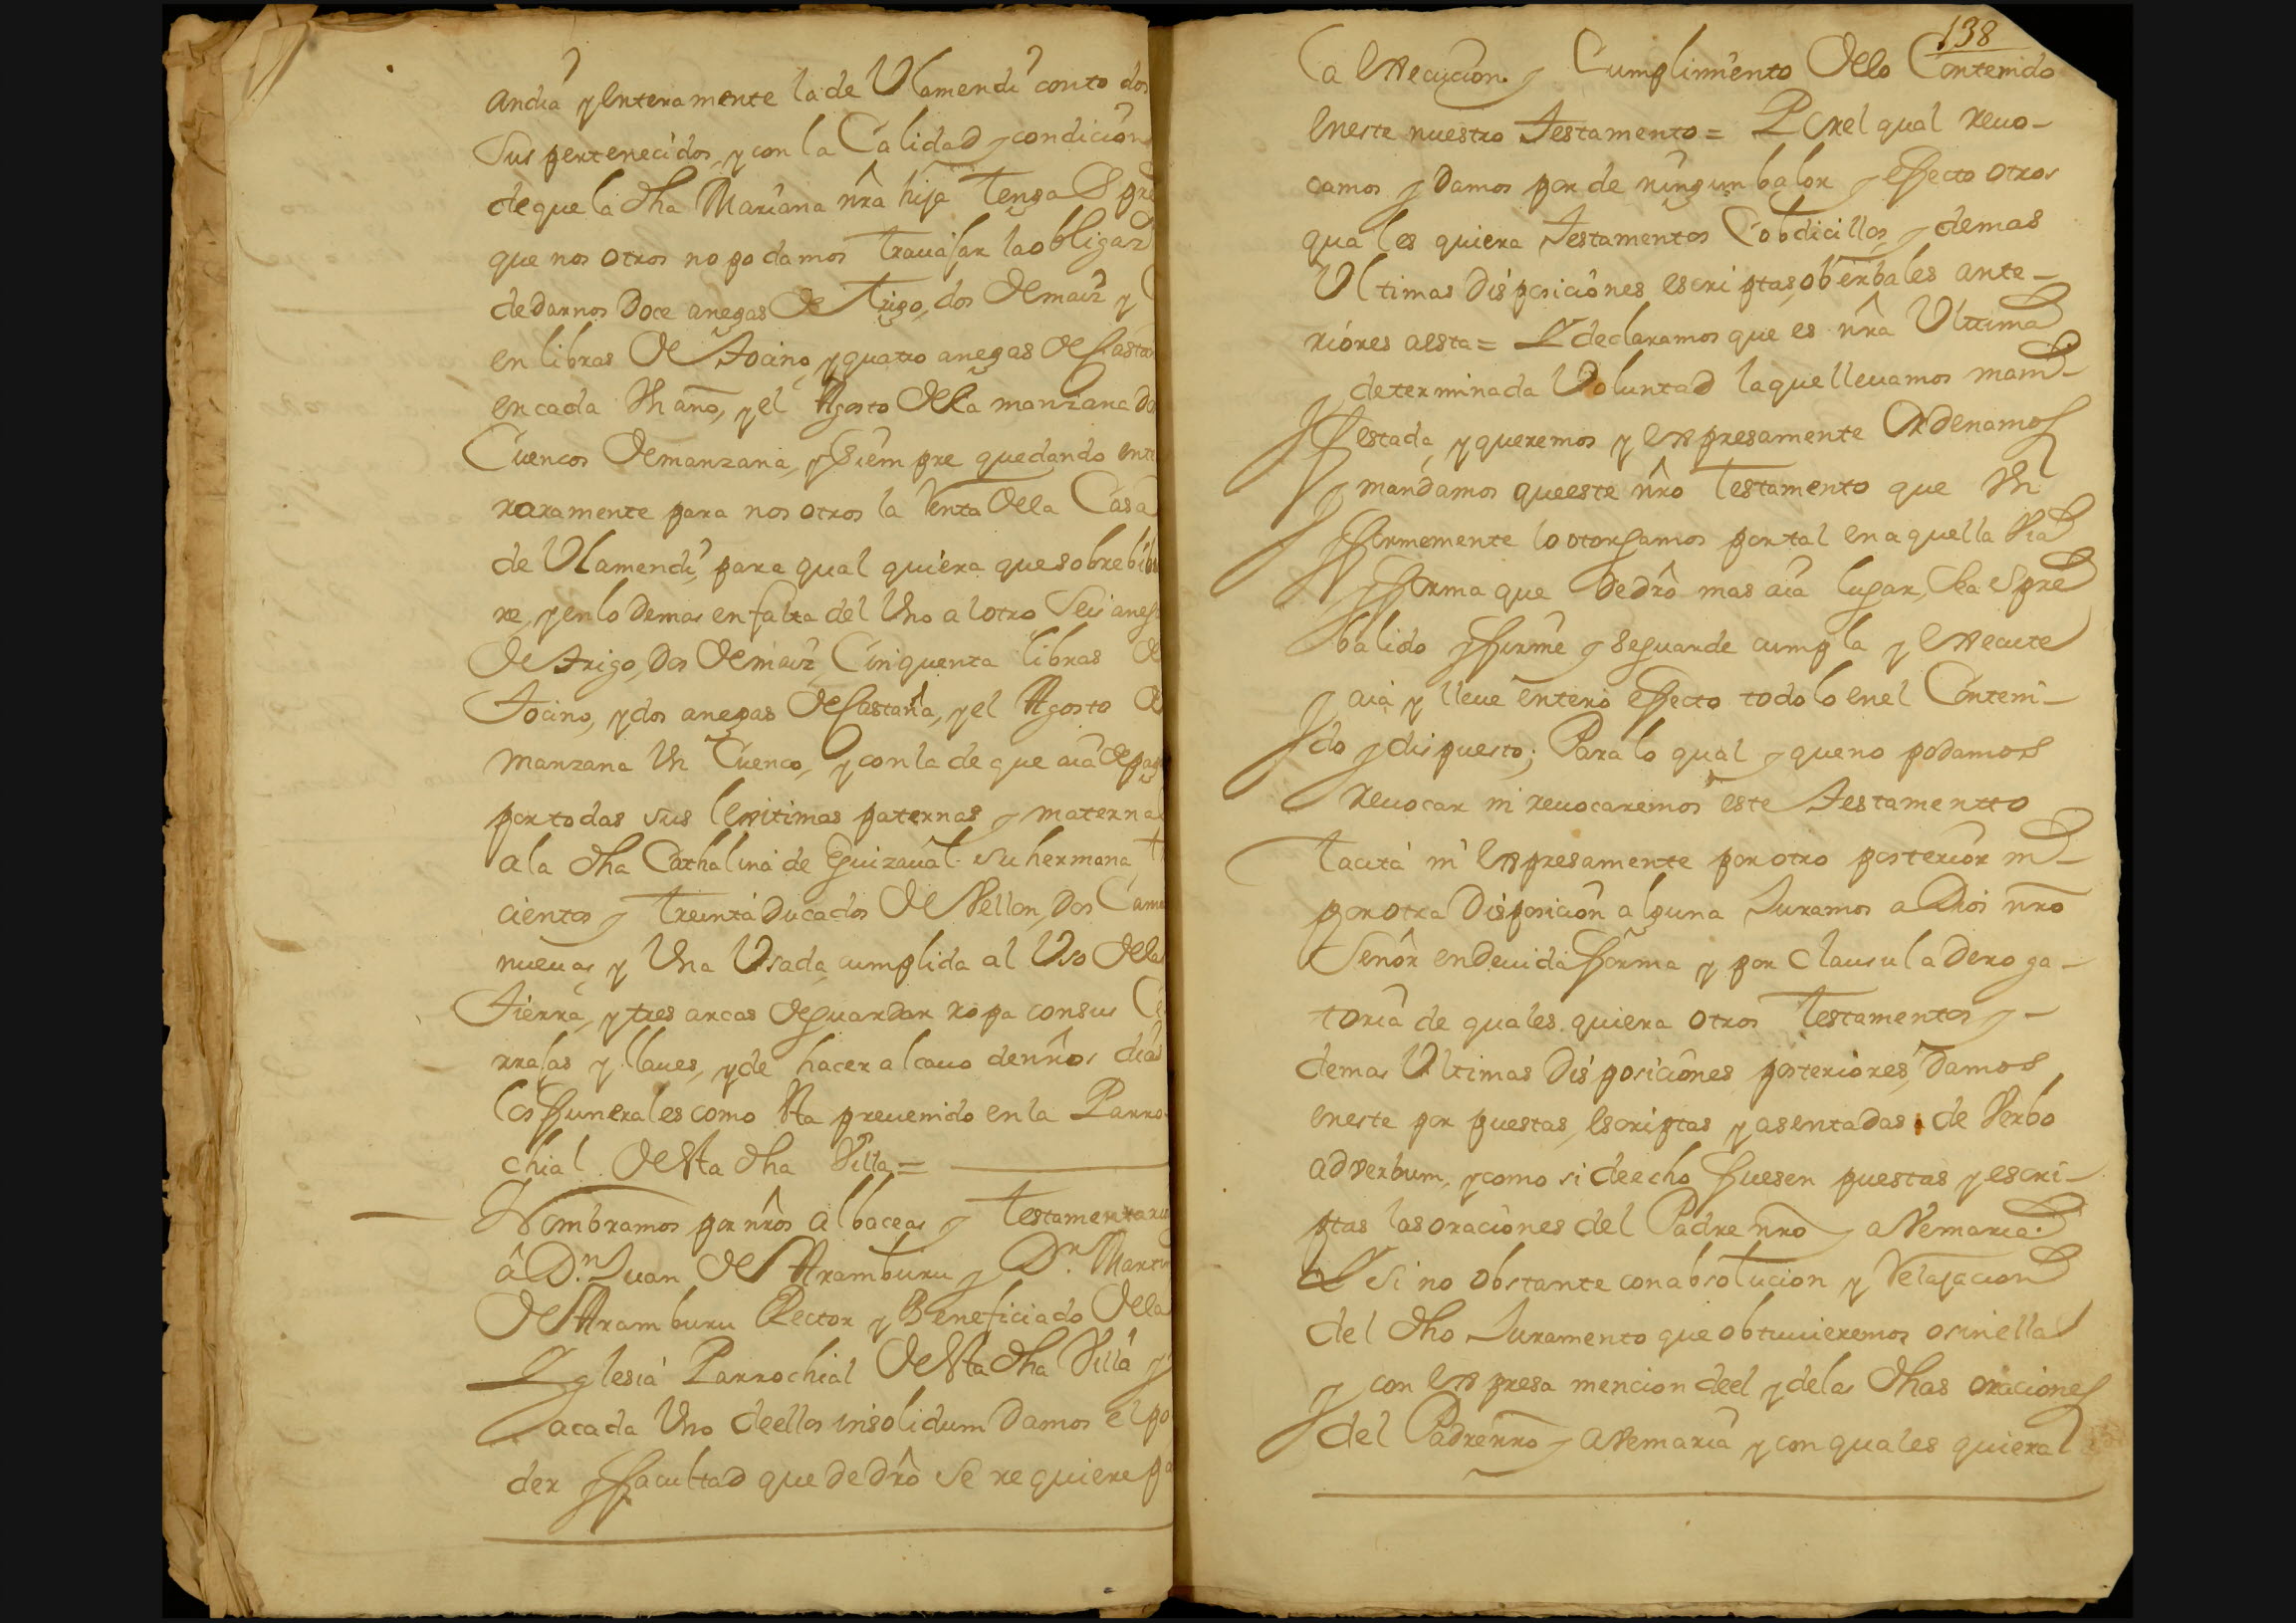 andia y enteramente la de Olamendi con to dos
Sus pertenecidos, y con la Calidad y condicion
de que la dha Mariana nra hija tenga S pre
que nos otros no podamos travajar la obligaz
de darnos Doce anegas de Trigo, dos de maiz y
en libras de Tocino, y quatro anegas de Castan
en cada Un año, y el Agosto de la manzana do
Cuencos de manzana, y siem pre quedando ente
raramente para nos otros la Renta de la Casa
de Olamendi, para qual quiera que sobrebibie
re, y en lo demas en falta del Uno al otro Seis aneg
de Trigo, dos de maiz, Cinquenta libras de
Tocino, y dos anegas de Castaña, y el Agosto de
manzana Un Cuenco, y con la de que aia de pag
por todas sus lexitimas paternas y materna
a la dha Cathalina de Eguizaval su hermana, t
cientos y treinta Ducados de Vellon, dos Cama
nuevas y Una Usada cumplida al Uso de la
Tierra, y tres arcas de guardar ropa con sus Ce
rrajas y llaves, y de hacer al cavo de nros dias
los funerales como Va prevenido en la Parro
chial de esta dha Villa =
Nombramos por nros albaceas y testamentario
â D.n Juan de Aramburu y D.n Martin
de Aramburu Rector y Beneficiado de la
Yglesia Parrochial de esta dha Villa y
a cada Uno de ellos insolidum damos el po
der y facultad que de dro se re quiere pa
138
la execucion y Cumplimiento de lo Contenido
en este nuestro Testamento = Por el qual revo-
camos y damos por de ningun balor y efecto otros
quales quiera Testamentos Cobdicillos y demas
Ultimas Disposiciones escriptas, o berbales ante-
riores a esta = Y declaramos que es nra Ultima
y determinada Voluntad la que llevamos mani-
festada, y queremos y expresamente Ordenamos
y mandamos que este nro testamento que Un
firmemente lo otorgamos por tal en aquella Via
y forma que de dro mas aia lugar, Sea S pre
balido y firme y se guarde cumpla y execute
y aia y lleve entero efecto todo lo en el Conteni-
do y dispuesto; Para lo qual y que no podamos
revocar ni revocaremos este Testamentto
tacita ni expresamente por otro posterior ni
por otra Disposicion alguna Juramos a Dios nro
Señor en devida forma y por clausula Deroga-
toria de quales quiera otros testamentos y -
demas Ultimas Disposiciones posteriores, damos
en este por puestas, escriptas y asentadas de Verbo
ad verbum, y como si de echo fuesen puestas y escri-
ptas las oraciones del Padre nro y aVemaria.
Y si no obstante con absolucion y Relajacion
del dho Juramento que obtuvieremos o sin ella
y con expresa mencion de el y de las dhas oraciones
del Padrenro y aVemaria y con quales quiera